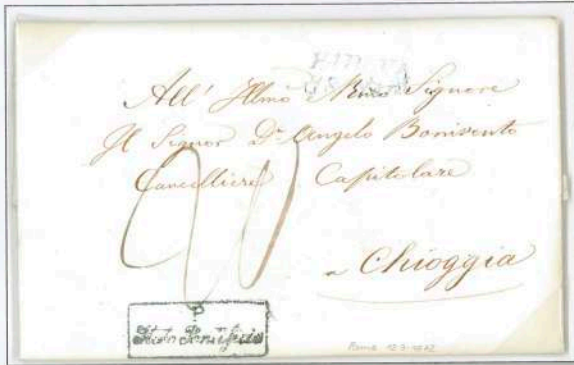 All' Illmo Rmo Signore
Il Signor Dr. Angelo Bonivento
Cancelliere Capitolare
a Chioggia
P.
Stato Pontificio
Roma